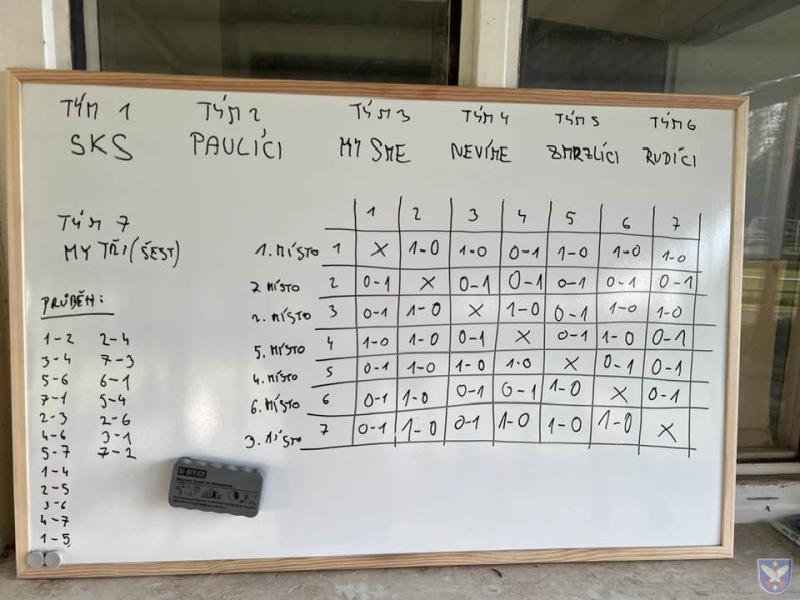 TÝM 1 TÝM 2 TÝM 3 TÝM 4 TÝM 5 TÝM 6
SKS PAULÍCI MY SME NEVÍME ZMRZLÍCI RUDÍCI
TÝM 7
MY TŘI (ŠEST)
1 2 3 4 5 6 7
1. MÍSTO 1 X 1-0 1-0 0-1 1-0 1-0 1-0
7. MÍSTO 2 0-1 X 0-1 0-1 0-1 0-1 0-1
2. MÍSTO 3 0-1 1-0 X 1-0 0-1 1-0 1-0
5. MÍSTO 4 1-0 1-0 0-1 X 0-1 1-0 0-1
4. MÍSTO 5 0-1 1-0 1-0 1-0 X 0-1 0-1
6. MÍSTO 6 0-1 1-0 0-1 0-1 1-0 X 0-1
3. MÍSTO 7 0-1 1-0 0-1 1-0 1-0 1-0 X
PRŮBĚH:
1-2 2-4
3-4 7-3
5-6 6-1
7-1 5-4
2-3 2-6
4-6 3-1
5-7 7-2
1-4
2-5
3-6
4-7
1-5